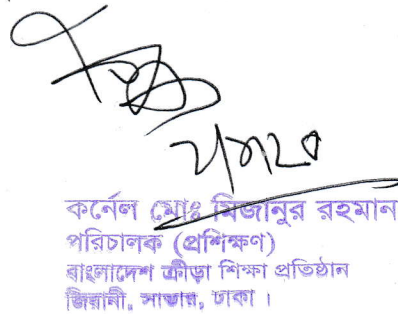 কর্নেল মোঃ মিজানুর রহমান
পরিচালক (প্রশিক্ষণ)
বাংলাদেশ ক্রীড়া শিক্ষা প্রতিষ্ঠান
জিরানী, সাভার, ঢাকা ।